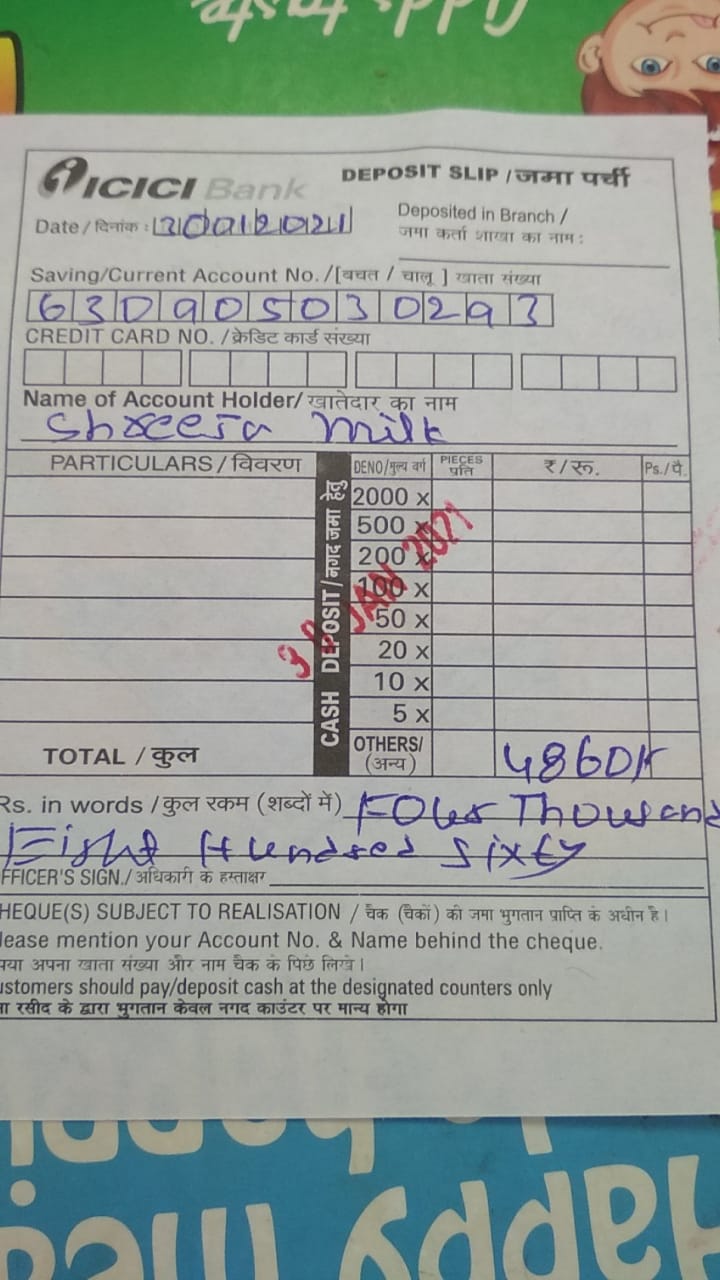 ICICI Bank
DEPOSIT SLIP / जमा पर्ची
Date / दिनांक : 30012021
Deposited in Branch /
जमा कर्ता शाखा का नाम :
Saving/Current Account No. /[बचत / चालू ] खाता संख्या
630905030293
CREDIT CARD NO. /क्रेडिट कार्ड संख्या
Name of Account Holder/ खातेदार का नाम
Shreeja Milk
PARTICULARS / विवरण
CASH DEPOSIT / नगद जमा हेतु
DENO/मूल्य वर्ग PIECES प्रति ₹/रू. Ps./पै.
2000 x
500 x
200 x
100 x
50 x
20 x
10 x
5 x
30 JAN 2021
TOTAL / कुल
OTHERS/ (अन्य) 4860/-
Rs. in words /कुल रकम (शब्दों में) Four Thousand
Eight Hundred Sixty
FFICER'S SIGN./ अधिकारी के हस्ताक्षर
HEQUE(S) SUBJECT TO REALISATION / चैक (चैकों) की जमा भुगतान प्राप्ति के अधीन है।
lease mention your Account No. & Name behind the cheque.
पया अपना खाता संख्या और नाम चैक के पिछे लिखे।
ustomers should pay/deposit cash at the designated counters only
मा रसीद के द्वारा भुगतान केवल नगद काउंटर पर मान्य होगा
Happy